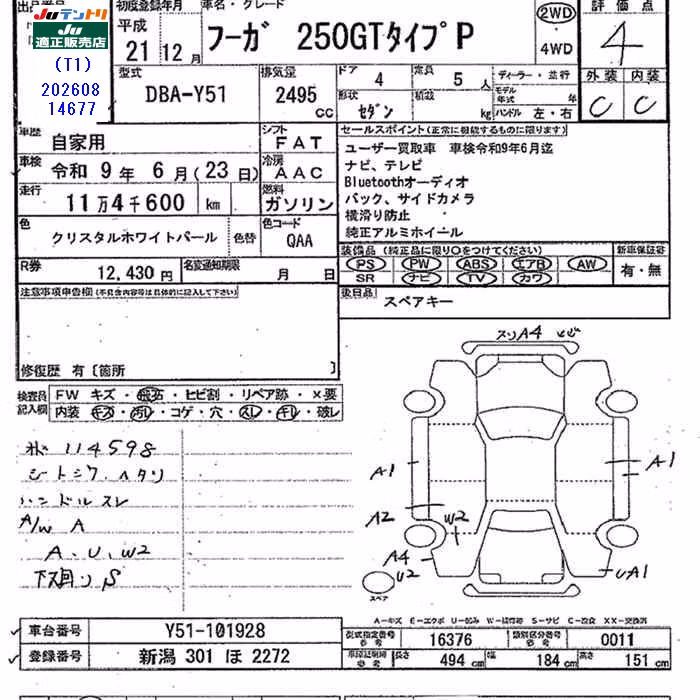 出品番号
JUテントリ
JU 適正販売店
(T1)
202608
14677
初度登録年月
平成
21年 12月
車名・グレード
フーガ 250GTタイプP
2WD
4WD
評価点
4
外装 内装
C C
型式
DBA-Y51
排気量
2495 cc
ドア 4
形状 セダン
定員 5人
積載 kg
ディーラー・並行
モデル年式 年
ハンドル 左・右
車歴
自家用
シフト
FAT
車検
令和 9年 6月(23日)
冷房
AAC
走行
11万4千600 km
燃料
ガソリン
色
クリスタルホワイトパール
色替
色コード
QAA
R券
12,430円
名変通知期限
月 日
セールスポイント(正常に機能するものに限ります)
ユーザー買取車 車検令和9年6月迄
ナビ、テレビ
Bluetoothオーディオ
バック、サイドカメラ
横滑り防止
純正アルミホイール
装備品(純正品に限り○をつけてください)
PS PW ABS エアB AW
SR ナビ TV カワ
新車保証書
有・無
後日品
スペアキー
注意事項申告欄(不具合内容等は具体的に記入して下さい)
修復歴 有〔箇所 〕
検査員記入欄
FW キズ・飛石・ヒビ割・リペア跡・×要
内装 キズ・汚レ・コゲ・穴・スレ・キレ・破レ
114598
シートシワ、ヘタリ
ハンドルスレ
A/W A
A、U、W2
下廻り S
スリA4 ヒビ
A1
A1
A2
W2
A4
U2
UA1
スペア
A-キズ E-エクボ U-凹み W-補修跡 S-サビ C-腐食 XX-交換済
車台番号
Y51-101928
登録番号
新潟 301 ほ 2272
型式指定番号
16376
類別区分番号
0011
長さ 494cm 幅 184cm 高さ 151cm